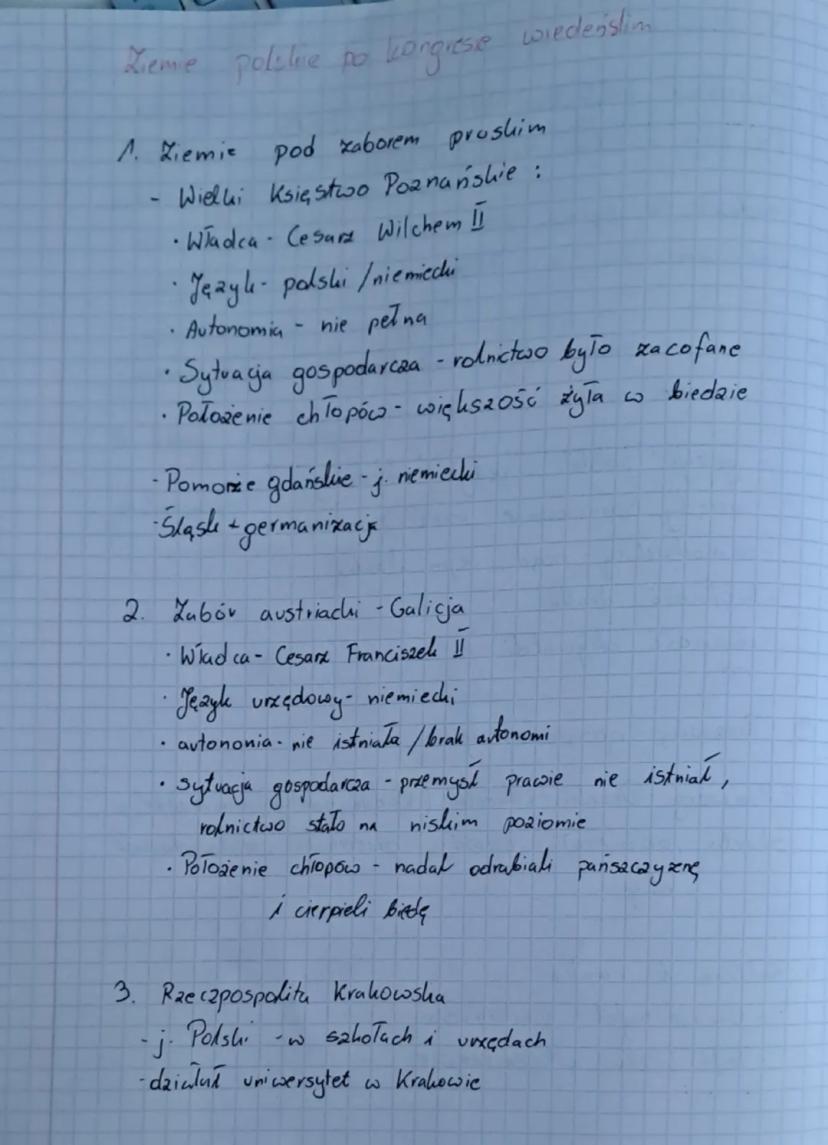 Ziemie polskie po kongresie wiedeńskim
1. Ziemie pod zaborem pruskim
- Wielki Księstwo Poznańskie :
· Władca - Cesarz Wilchem II
· Język - polski / niemiecki
· Autonomia - nie pełna
· Sytuacja gospodarcza - rolnictwo było zacofane
· Położenie chłopów - większość żyła w biedzie
- Pomorze gdańskie - j. niemiecki
- Śląsk + germanizacja
2. Zabór austriacki - Galicja
· Władca - Cesarz Franciszek II
· Język urzędowy - niemiecki
· autonomia - nie istniała / brak autonomi
· sytuacja gospodarcza - przemysł prawie nie istniał,
rolnictwo stało na niskim poziomie
· Położenie chłopów - nadal odrabiali pańszczyznę
i cierpieli biedę
3. Rzeczpospolita Krakowska
- j. Polski - w szkołach i urzędach
- działał uniwersytet w Krakowie